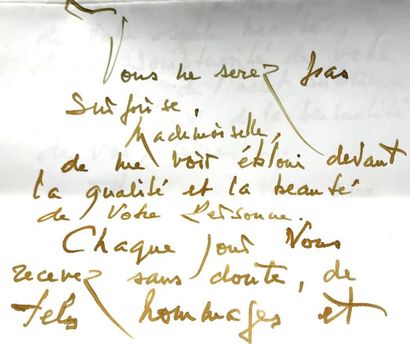 Vous ne serez pas
surprise,
Mademoiselle,
de me voir ébloui devant
la qualité et la beauté
de Votre Personne.
Chaque jour Vous
recevez sans doute, de
tels hommages et